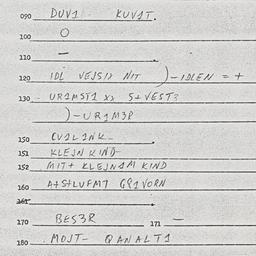 090 DUV1 KUV1T.
100 O
110 —
120 IDL VEJSI) NIT )—IDLEN = +
130 - UR1MST1 X3 5+VEST3
)-UR1M3P
150 CV1L1NK-
151 KLEJN KIND
152 MITT KLEJN1M KIND
160 A+S+LUFMT GR1VORN
161
170 BES3R 171 —
180 MOJT- QANALT1